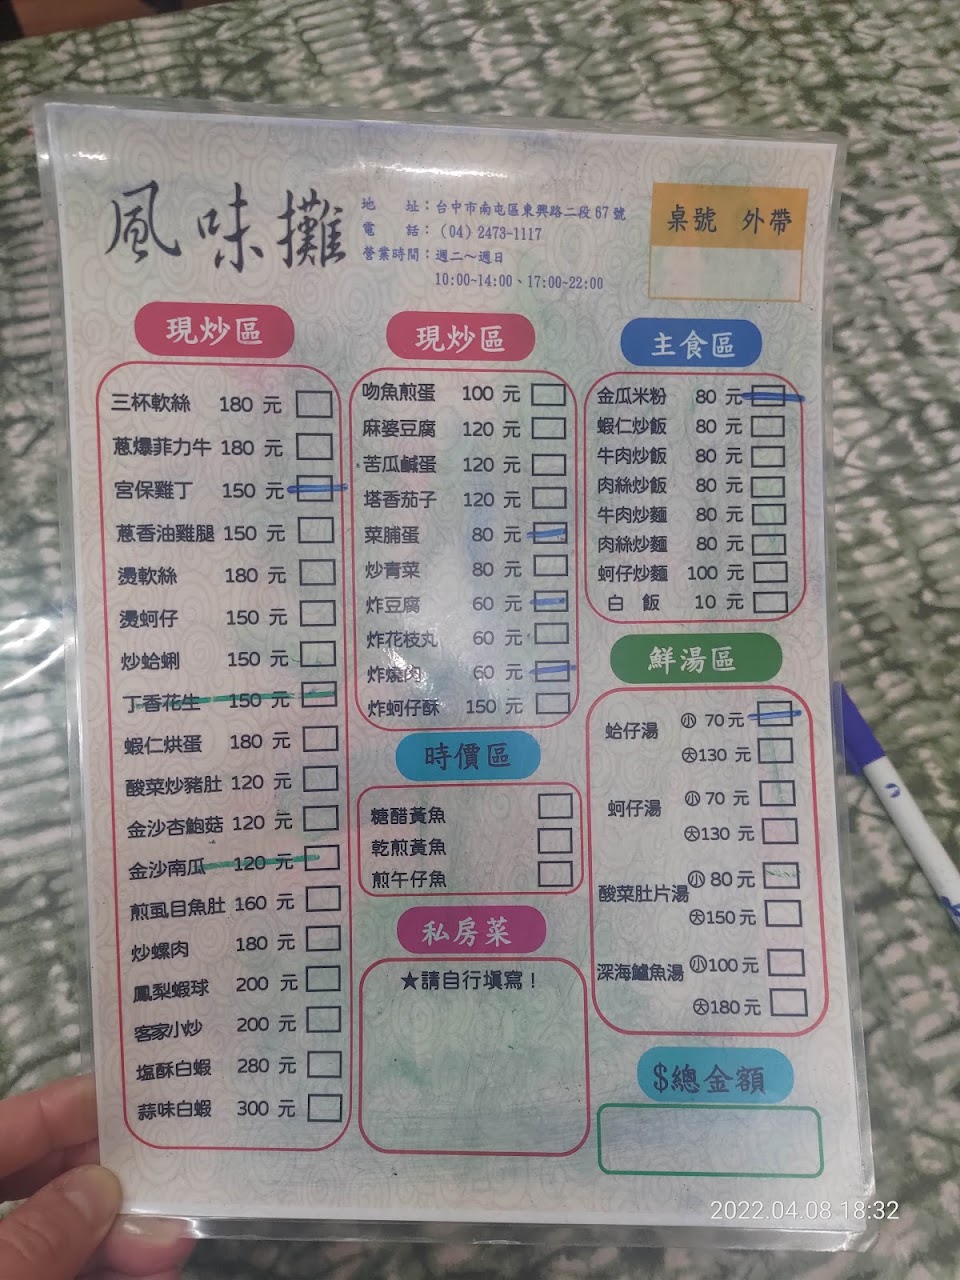 風味攤
地　址：台中市南屯區東興路二段67號
電　話：（04）2473-1117
營業時間：週二～週日
10:00~14:00、17:00~22:00
桌號 外帶
現炒區
三杯軟絲 180 元
蔥爆菲力牛 180 元
宮保雞丁 150 元
蔥香油雞腿 150 元
燙軟絲 180 元
燙蚵仔 150 元
炒蛤蜊 150 元
丁香花生 150 元
蝦仁烘蛋 180 元
酸菜炒豬肚 120 元
金沙杏鮑菇 120 元
金沙南瓜 120 元
煎虱目魚肚 160 元
炒螺肉 180 元
鳳梨蝦球 200 元
客家小炒 200 元
塩酥白蝦 280 元
蒜味白蝦 300 元
現炒區
吻魚煎蛋 100 元
麻婆豆腐 120 元
苦瓜鹹蛋 120 元
塔香茄子 120 元
菜脯蛋 80 元
炒青菜 80 元
炸豆腐 60 元
炸花枝丸 60 元
炸燒肉 60 元
炸蚵仔酥 150 元
時價區
糖醋黃魚
乾煎黃魚
煎午仔魚
私房菜
★請自行填寫！
主食區
金瓜米粉 80 元
蝦仁炒飯 80 元
牛肉炒飯 80 元
肉絲炒飯 80 元
牛肉炒麵 80 元
肉絲炒麵 80 元
蚵仔炒麵 100 元
白 飯 10 元
鮮湯區
蛤仔湯 ㊙小 70元
大130 元
蚵仔湯 小 70 元
大130 元
酸菜肚片湯 小 80 元
大150 元
深海鱸魚湯 小100 元
大180 元
$總金額
2022.04.08 18:32